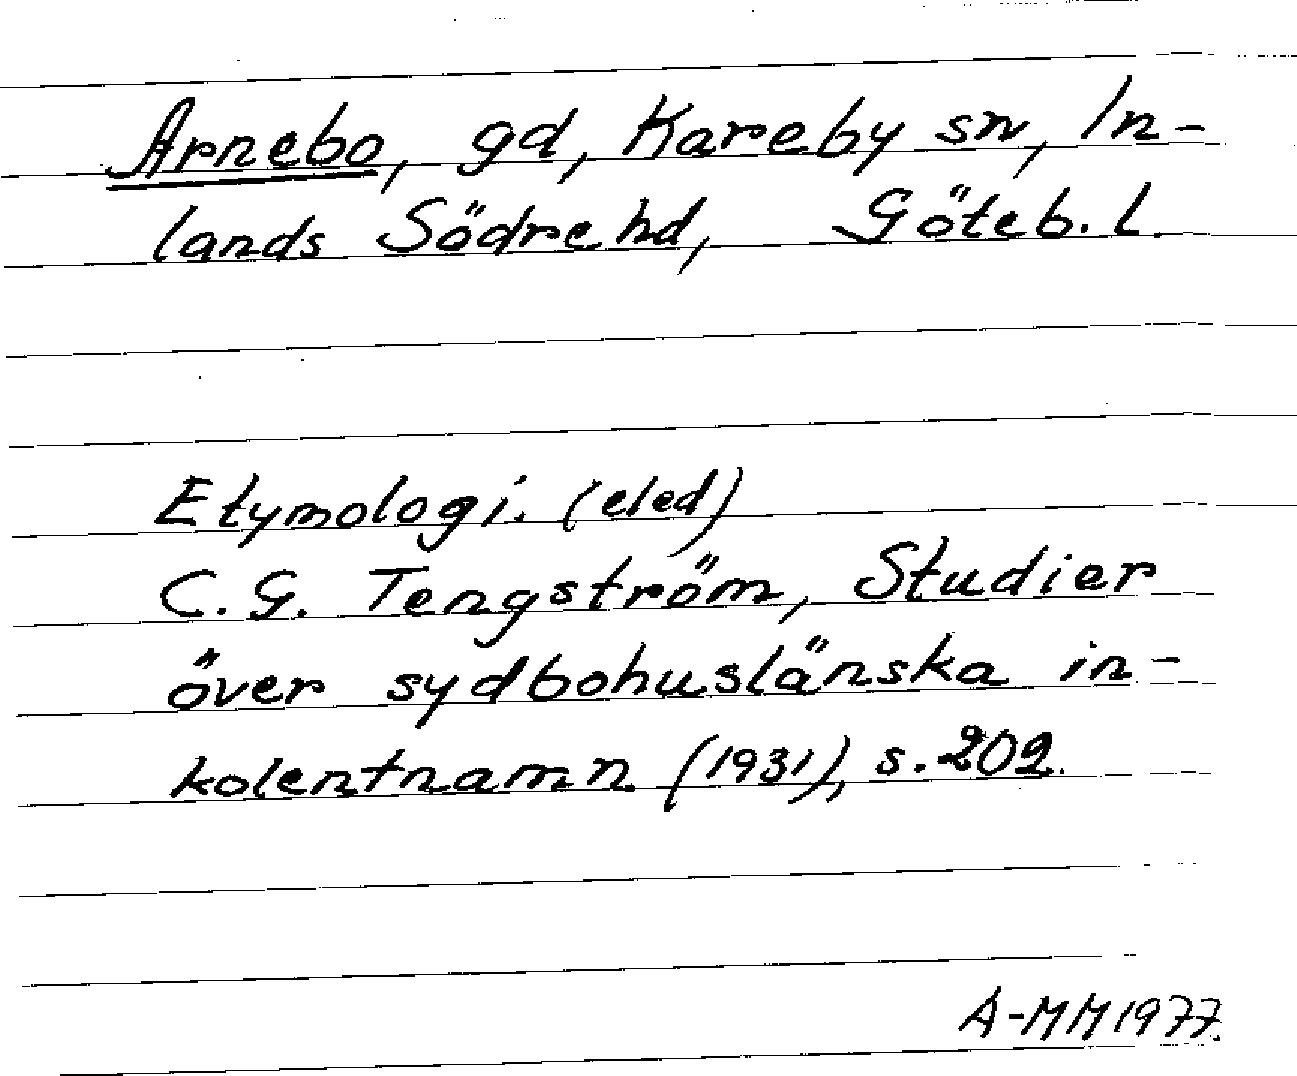 Arnebo, gd, Kareby sn, In-
lands Södre hd, Göteb. l.
Etymologi. (eled)
C. G. Tengström, Studier
över sydbohuslänska in-
kolentnamn (1931), s. 202.
A-MM 1977.